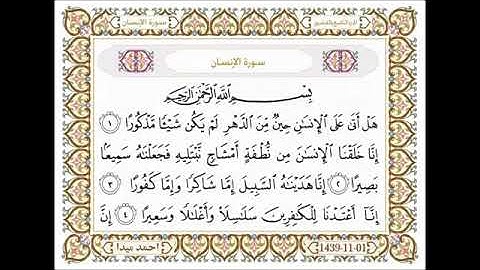 سورة الإنسان
الجزء التاسع والعشرون
سورة الإنسان
بِسْمِ اللَّهِ الرَّحْمَٰنِ الرَّحِيمِ
هَلْ أَتَىٰ عَلَى الْإِنسَٰنِ حِينٌ مِّنَ الدَّهْرِ لَمْ يَكُن شَيْـًٔا مَّذْكُورًا ١
إِنَّا خَلَقْنَا الْإِنسَٰنَ مِن نُّطْفَةٍ أَمْشَاجٍ نَّبْتَلِيهِ فَجَعَلْنَٰهُ سَمِيعًۢا
بَصِيرًا ٢ إِنَّا هَدَيْنَٰهُ السَّبِيلَ إِمَّا شَاكِرًا وَإِمَّا كَفُورًا ٣
إِنَّآ أَعْتَدْنَا لِلْكَٰفِرِينَ سَلَٰسِلَا۟ وَأَغْلَٰلًا وَسَعِيرًا ٤ إِنَّ
احمد ميدا
1439-11-01